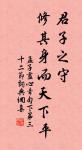 君子之守
修其身而天下平
孟子盡心章句下第三
十二節詞典網集